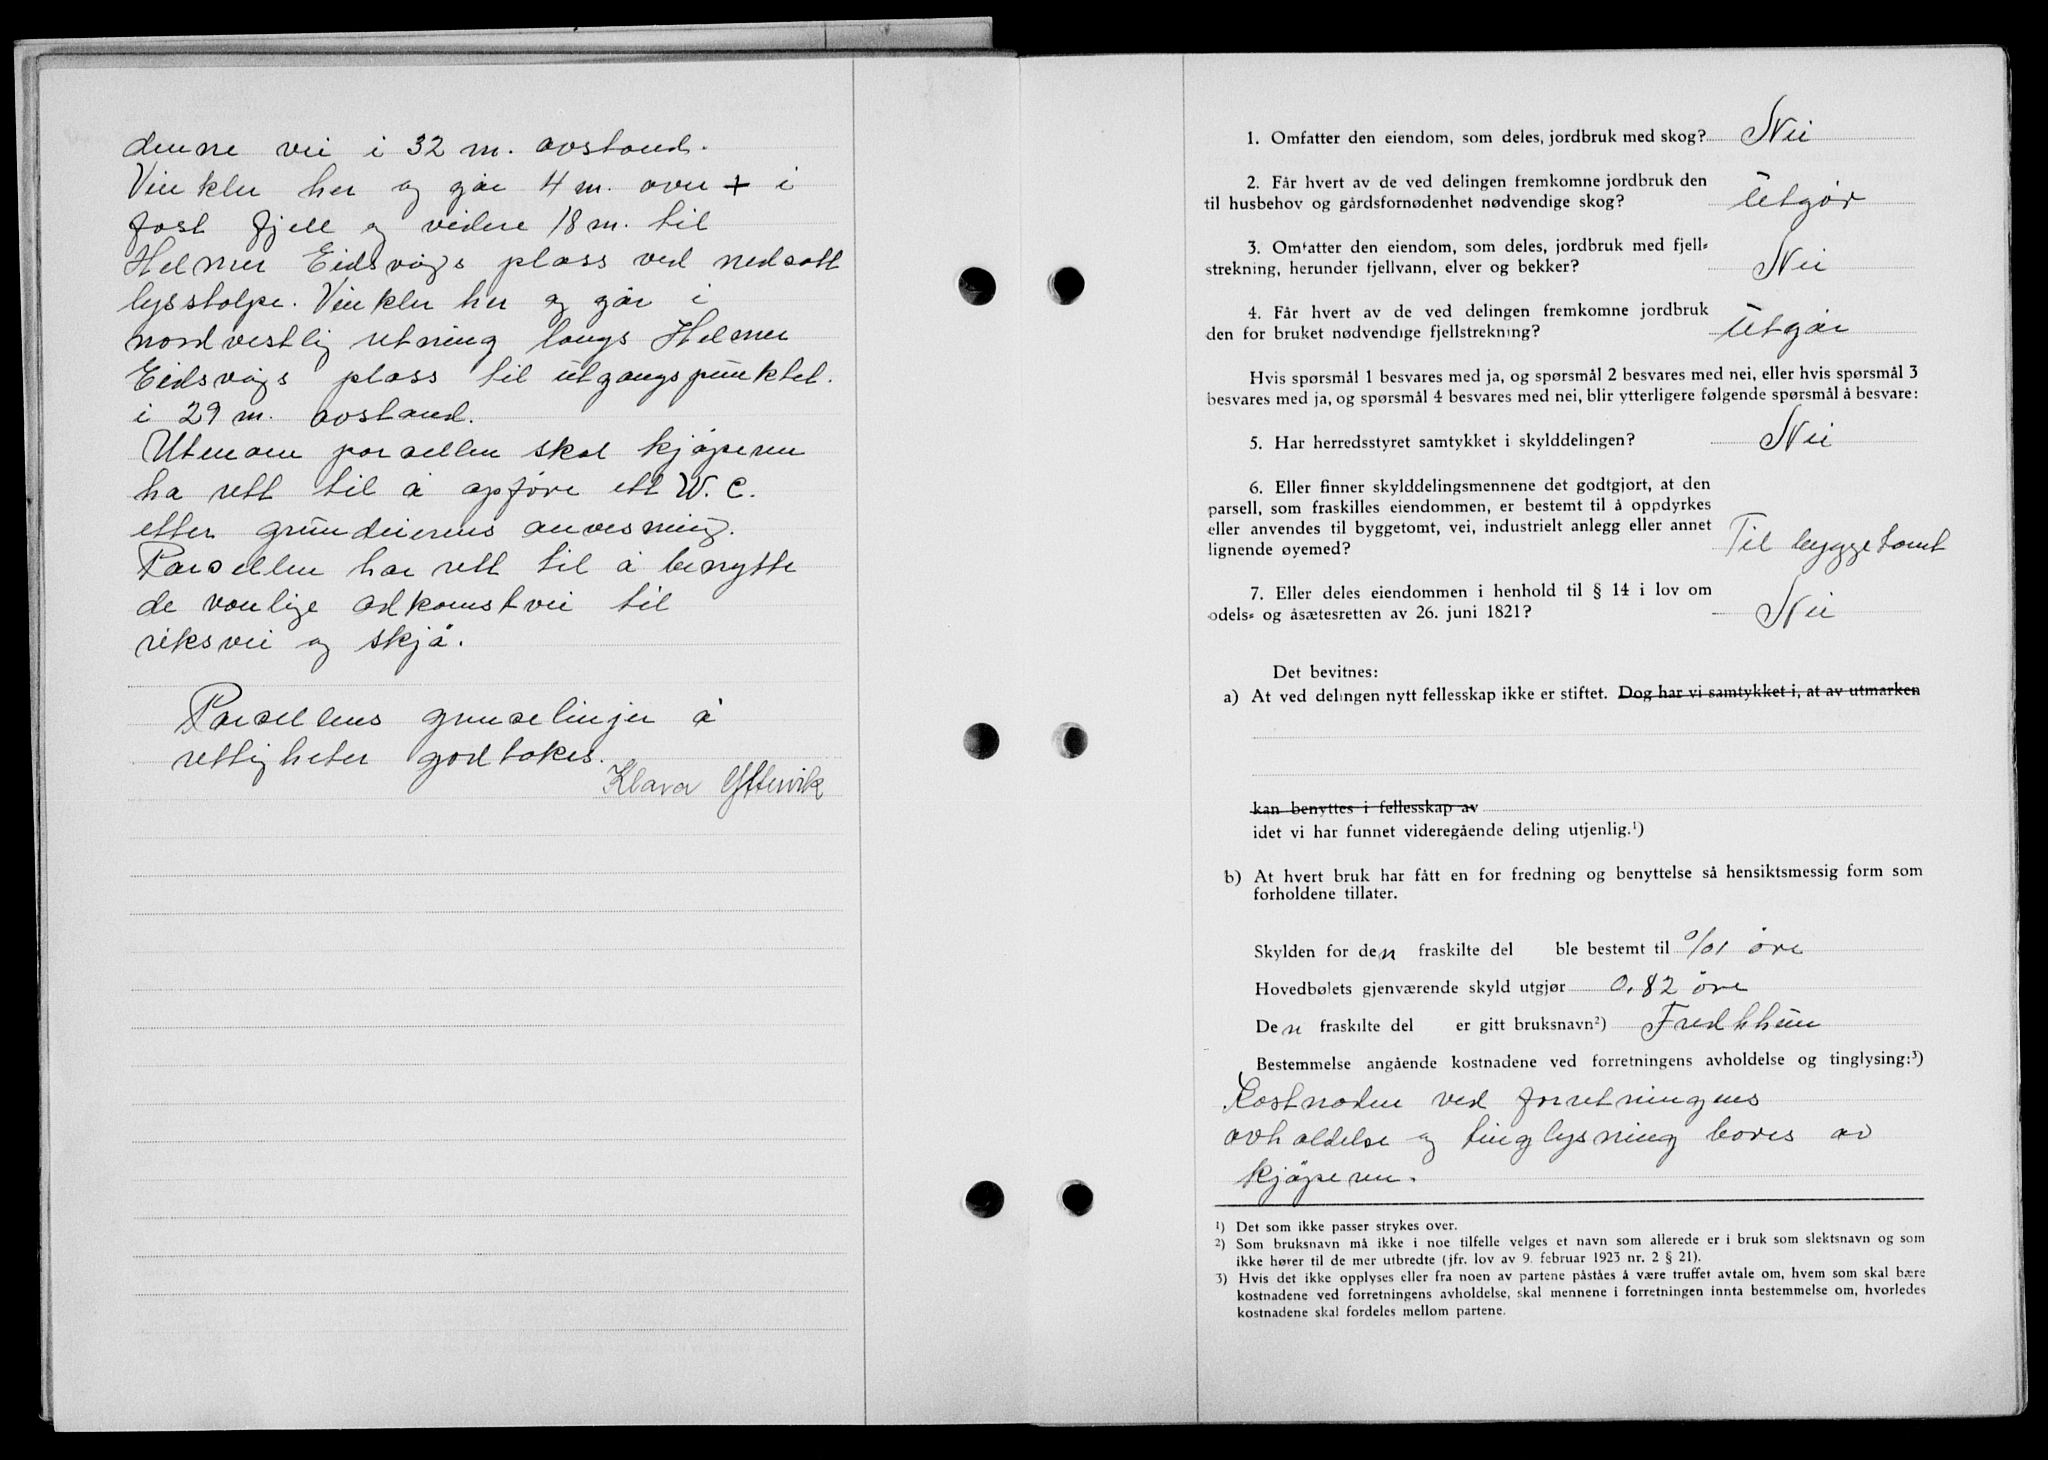 denne vei i 32 m. avstand.
Vinkler her og går 4 m. over + i
fast fjell og videre 18 m. til
Helmer Eidsvågs plass ved nedsatt
lysstolpe. Vinkler her og går i
nordvestlig retning langs Helmer
Eidsvågs plass til utgangspunktet.
i 29 m. avstand.
Utenom parsellen skal kjøperen
ha rett til å opføre ett W.C.
etter grundeierens anvisning.
Parsellen har rett til å benytte
de vanlige adkomstvei til
riksvei og skjø.
Parsellens grenselinjer å
rettigheter godtakes.
Klara Yttervik
1. Omfatter den eiendom, som deles, jordbruk med skog? Nei
2. Får hvert av de ved delingen fremkomne jordbruk den
til husbehov og gårdsfornødenhet nødvendige skog? Utgår
3. Omfatter den eiendom, som deles, jordbruk med fjell-
strekning, herunder fjellvann, elver og bekker? Nei
4. Får hvert av de ved delingen fremkomne jordbruk
den for bruket nødvendige fjellstrekning? Utgår
Hvis spørsmål 1 besvares med ja, og spørsmål 2 besvares med nei, eller hvis spørsmål 3
besvares med ja, og spørsmål 4 besvares med nei, blir ytterligere følgende spørsmål å besvare:
5. Har herredsstyret samtykket i skylddelingen? Nei
6. Eller finner skylddelingsmennene det godtgjort, at den
parsell, som fraskilles eiendommen, er bestemt til å oppdyrkes
eller anvendes til byggetomt, vei, industrielt anlegg eller annet
lignende øyemed? Til byggetomt
7. Eller deles eiendommen i henhold til § 14 i lov om
odels- og åsætesretten av 26. juni 1821? Nei
Det bevitnes:
a) At ved delingen nytt fellesskap ikke er stiftet. Dog har vi samtykket i, at av utmarken
kan benyttes i fellesskap av
idet vi har funnet videregående deling utjenlig.¹)
b) At hvert bruk har fått en for fredning og benyttelse så hensiktsmessig form som
forholdene tillater.
Skylden for den fraskilte del ble bestemt til 0/01 øre
Hovedbølets gjenværende skyld utgjør 0.82 øre
Den fraskilte del er gitt bruksnavn²) Fredhheim
Bestemmelse angående kostnadene ved forretningens avholdelse og tinglysing:³)
Kostnaden ved forretningens
avholdelse og tinglysning bæres av
kjøperen.
¹) Det som ikke passer strykes over.
²) Som bruksnavn må ikke i noe tilfelle velges et navn som allerede er i bruk som slektsnavn og som
ikke hører til de mer utbredte (jfr. lov av 9. februar 1923 nr. 2 § 21).
3) Hvis det ikke opplyses eller fra noen av partene påståes å være truffet avtale om, hvem som skal bære
kostnadene ved forretningens avholdelse, skal mennene i forretningen innta bestemmelse om, hvorledes
kostnadene skal fordeles mellom partene.